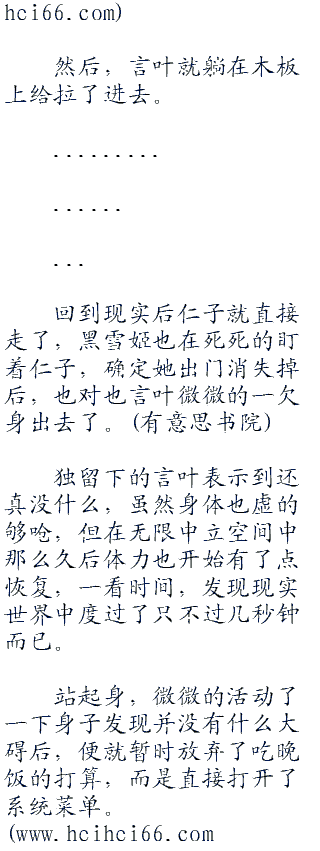 hci66.com)
然后，言叶就躺在木板
上给拉了进去。
.........
......
...
回到现实后仁子就直接
走了，黑雪姬也在死死的盯
着仁子，确定她出门消失掉
后，也对也言叶微微的一欠
身出去了。(有意思书院)
独留下的言叶表示到还
真没什么，虽然身体也虚的
够呛，但在无限中立空间中
那么久后体力也开始有了点
恢复，一看时间，发现现实
世界中度过了只不过几秒钟
而已。
站起身，微微的活动了
一下身子发现并没有什么大
碍后，便就暂时放弃了吃晚
饭的打算，而是直接打开了
系统菜单。
(www.hcihci66.com